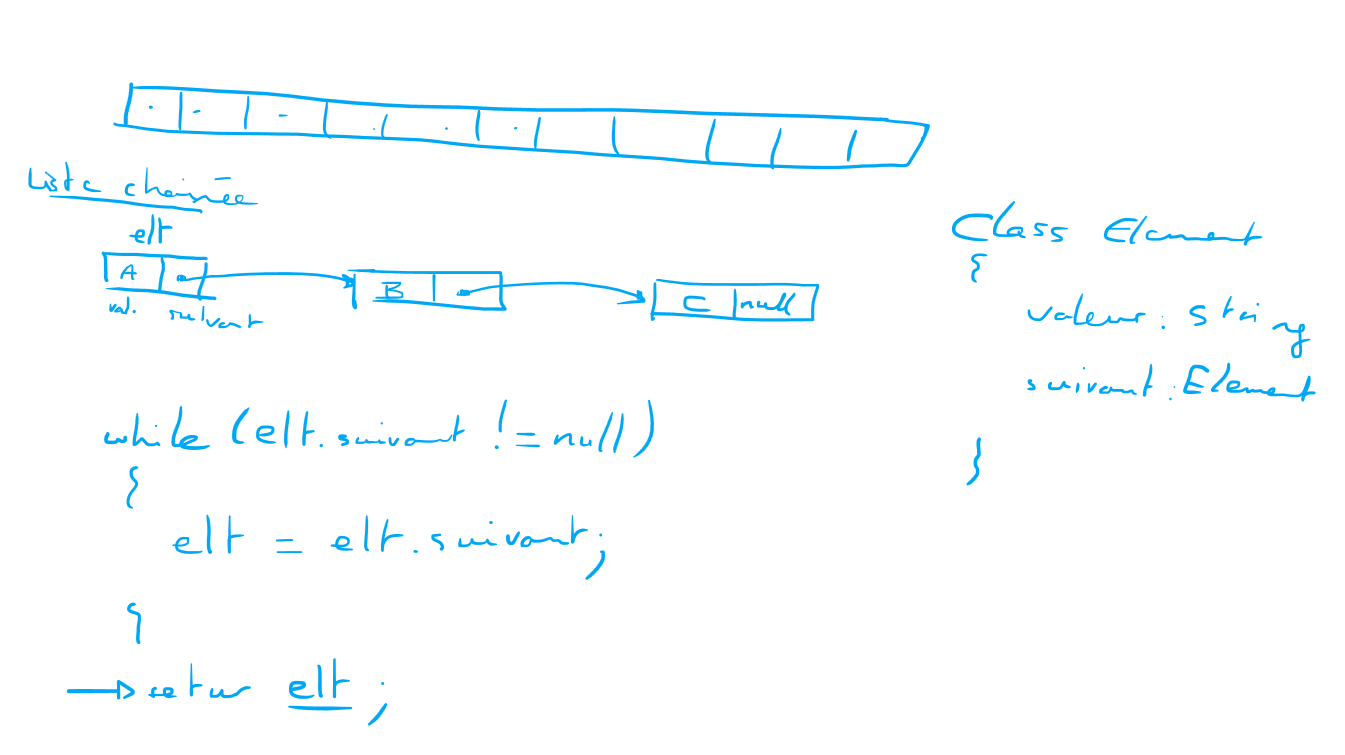 Liste chainée
elt
A
B
C null
val. suivant
while (elt.suivant != null)
{
elt = elt.suivant;
}
retur elt ;
Class Element
{
valeur : string
suivant : Element
}